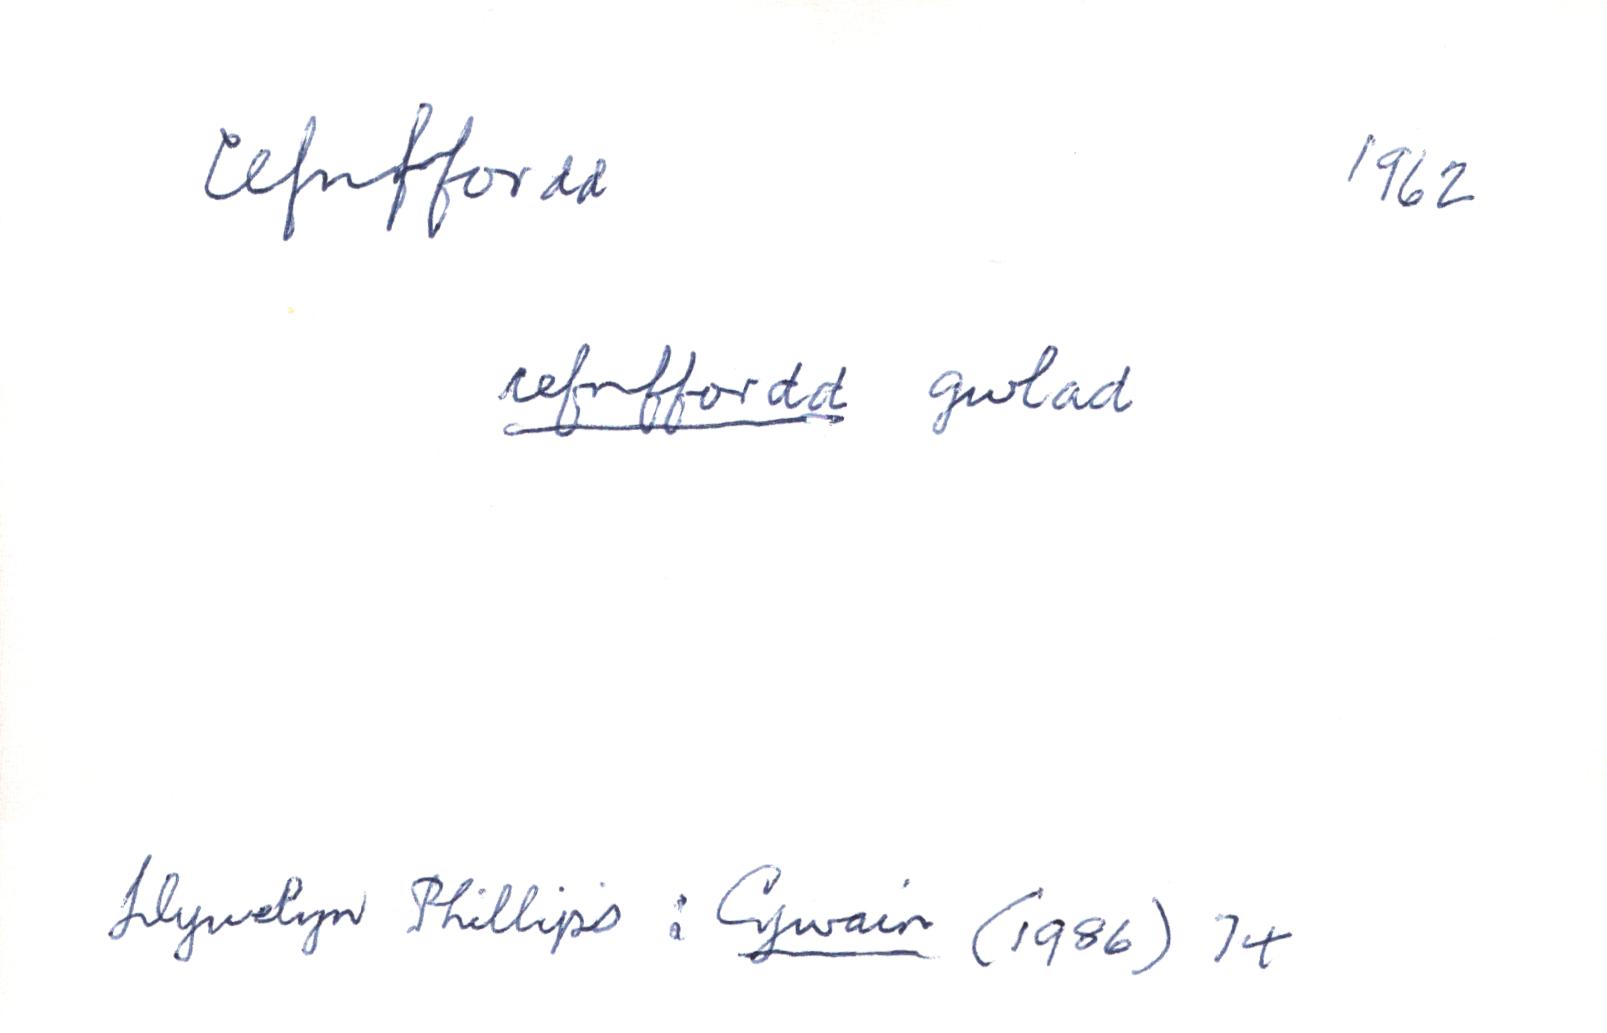 cefnffordd 1962
cefnffordd gwlad
Llywelyn Phillips : Cywain (1986) 74